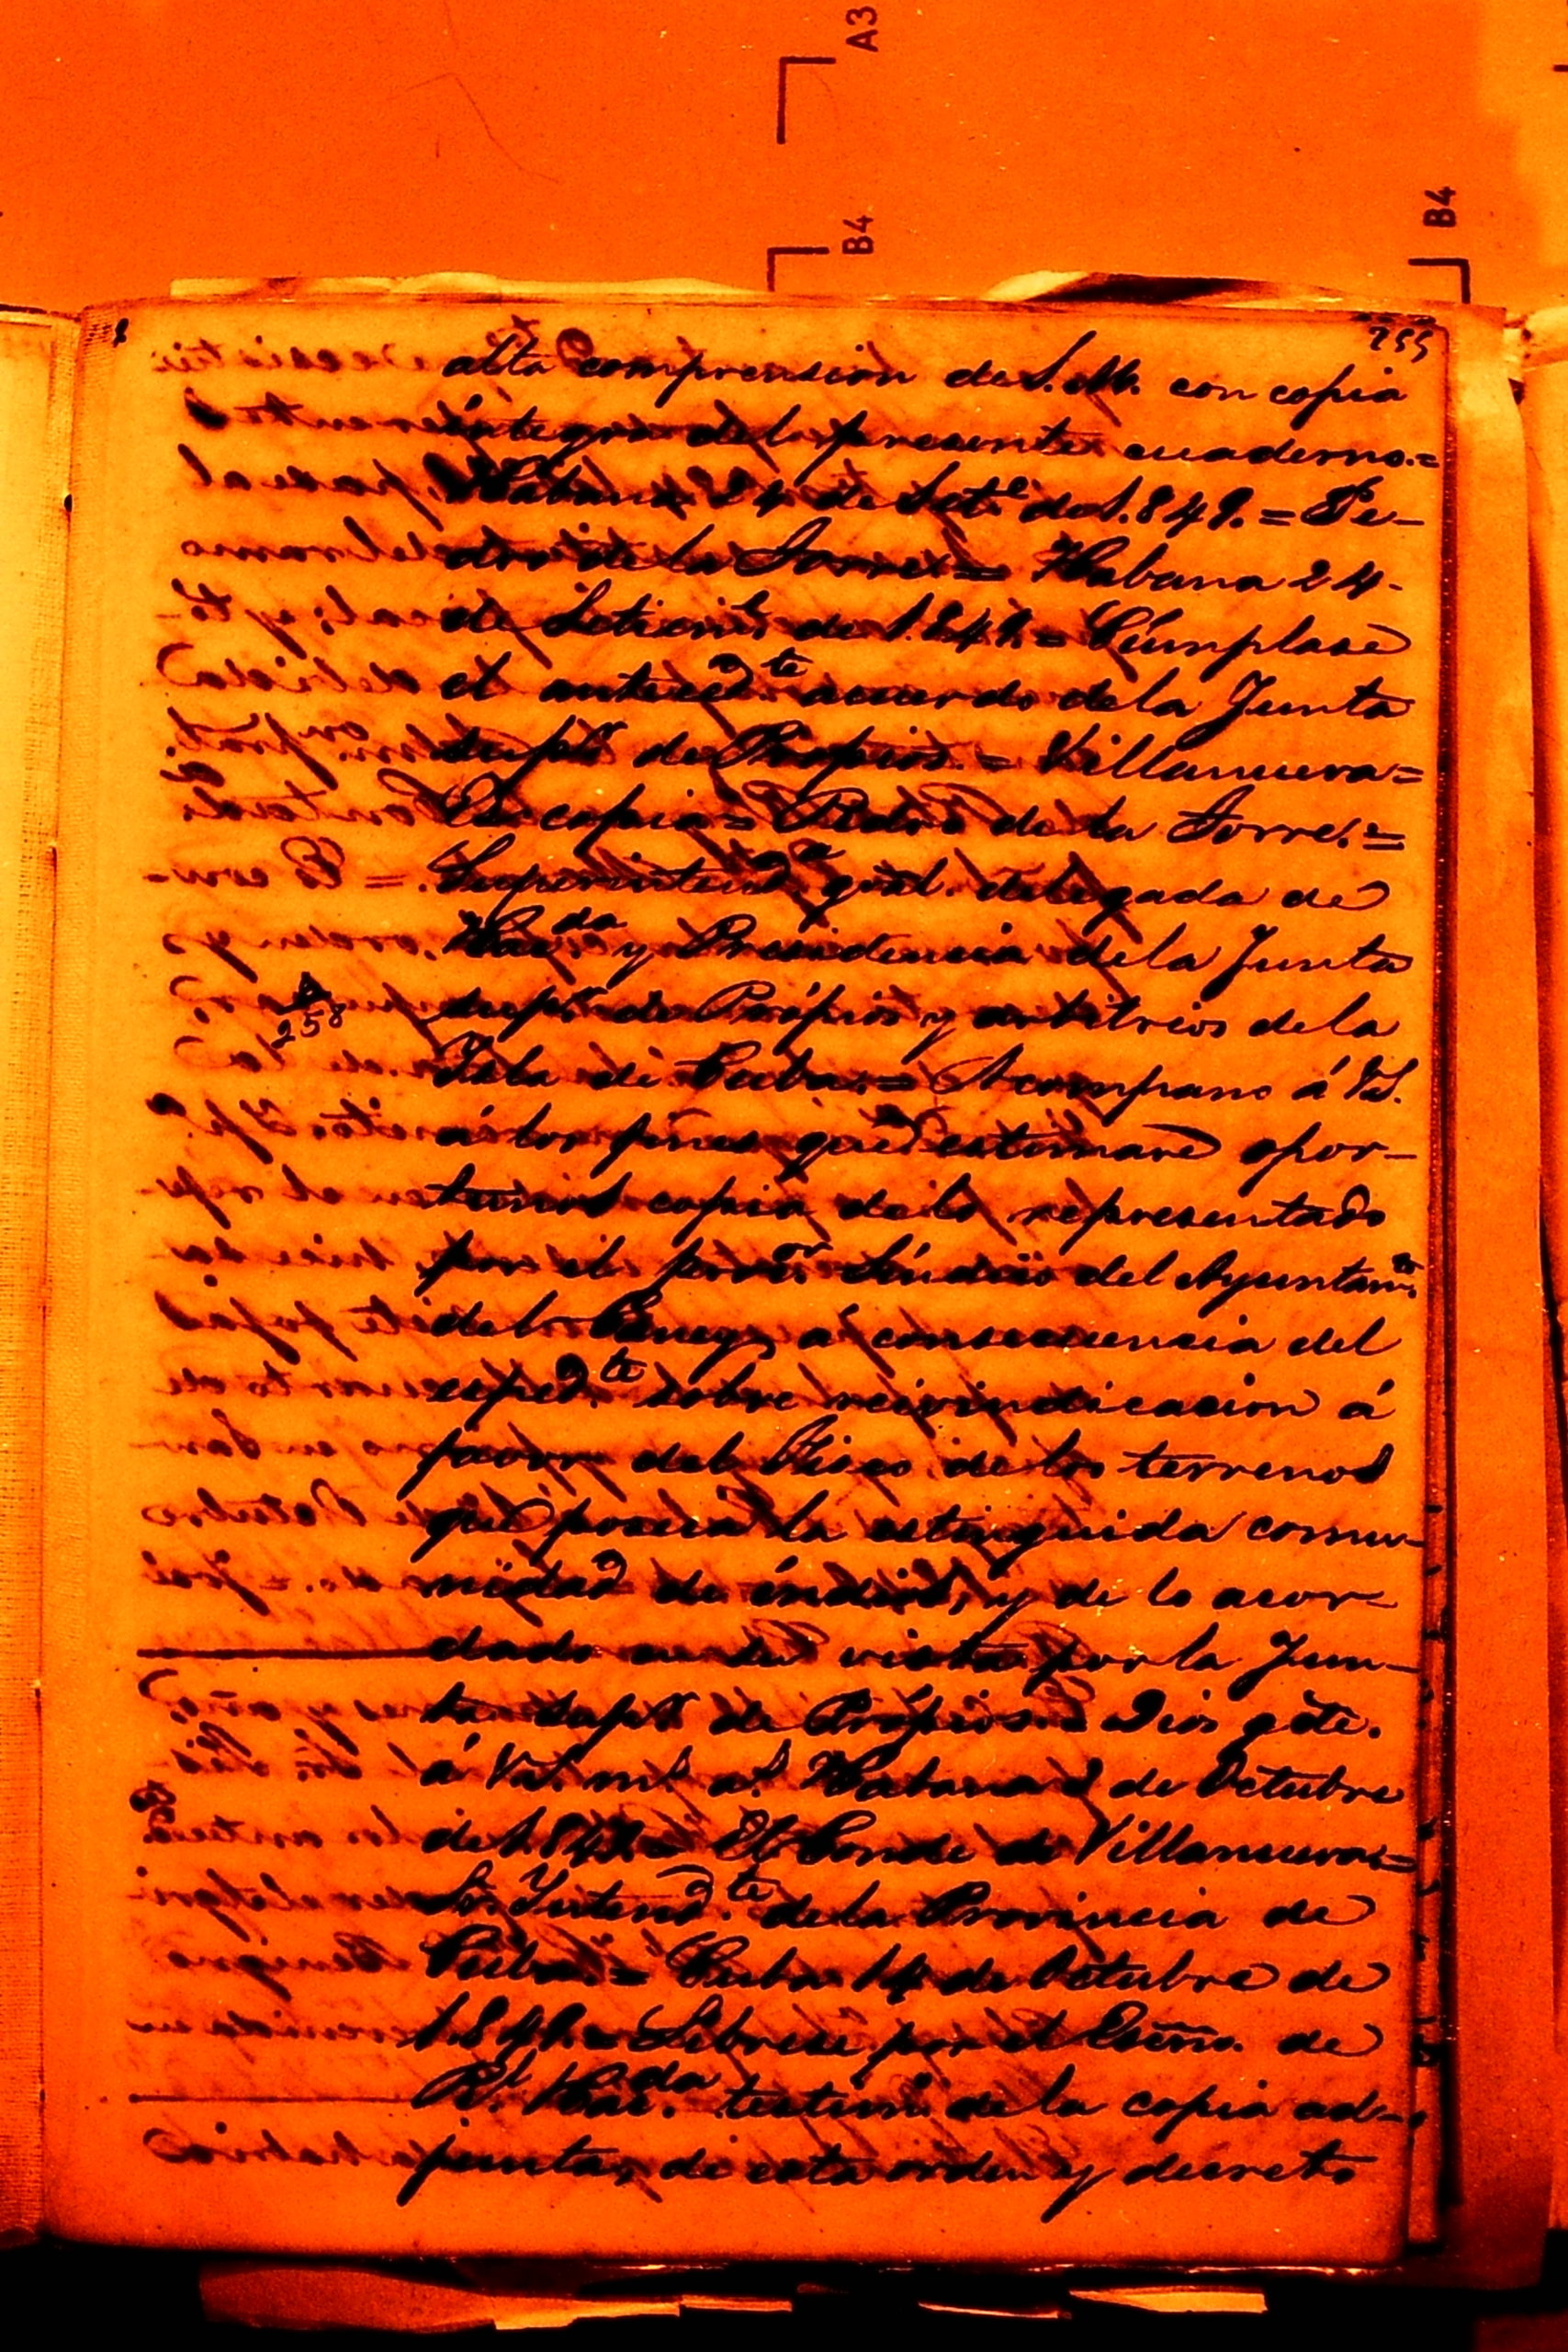 A3
B4
B4
255
alta comprension de S. M. con copia
íntegra del presente cuaderno.=
Habana 24 de Set.e de 1.849. = Pe-
dro de la Torre. = Habana 24
de Setiem.e de 1.849. = Cúmplase
el anteced.te acuerdo de la Junta
sup.r de Propios. = Villanueva =
Es copia = Pedro de la Torre. =
Superintend.a gral. delegada de
Hac.da y Presidencia de la Junta
sup.r de Própios y arbitrios de la
258
Isla de Cuba. = Acompano á VS.
á los fines que estimare opor-
tunos copia de lo representado
por el proc.or Síndico del Ayuntam.to
del Caney, a consecuencia del
exped.te sobre reivindicacion á
favor del Fisco de los terrenos
que poseia la estinguida comu-
nidad de índios, y de lo acor-
dado en su vista por la Jun-
ta sup.r de Própios = Dios gũe.
á VS. m.s a.s Habana 2 de Octubre
de 1.849. = El Conde de Villanueva =
Sor. Intend.te de la Provincia de
Cuba. = Cuba 14 de Octubre de
1.849. = Líbrese por el Escño. de
R.l Hac.da testim.o de la copia ad-
junta, de esta orden y decreto